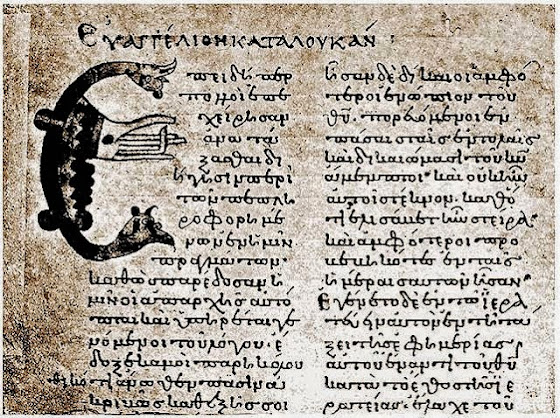 Εὐαγγέλιον κατὰ Λουκάν:
Ἐπειδήπερ
πολλοὶ ἐπε
χείρησαν
ἀνατά
ξασθαι δι
ήγησιν περὶ
τῶν πεπλη
ροφορημέ
νων ἐν ἡμῖν
πραγμάτων·
καθὼς παρέδοσαν ἡ
μῖν οἱ ἀπαρχῆς αὐτό
πται καὶ ὑπηρέται γε
νόμενοι τοῦ λόγου· ἔ
δοξε κἀμοὶ παρηκολου
θηκότι ἄνωθεν πᾶσιν ἀ
κριβῶς καθεξῆς σοι
ἦσαν δὲ δίκαιοι ἀμφό
τεροι ἐνώπιον τοῦ
θυ· πορευόμενοι ἐν
πάσαις ταῖς ἐντολαῖς
καὶ δικαιώμασι τοῦ κυ
ἄμεμπτοι· καὶ οὐκ ἦν
αὐτοῖς τέκνον· καθό
τι ἐλισάβετ ἦν στεῖρα·
καὶ ἀμφότεροι προ
βεβηκότες ἐν ταῖς
ἡμέραις αὐτῶν ἦσαν·
Ἐγένετο δὲ ἐν τῷ ἱερα
τεύειν αὐτὸν ἐν τῇ τά
ξει τῆς ἐφημερίας
αὐτοῦ ἔναντι τοῦ θυ
κατὰ τὸ ἔθος τῆς ἱε
ρατείας· ἔλαχε τοῦ